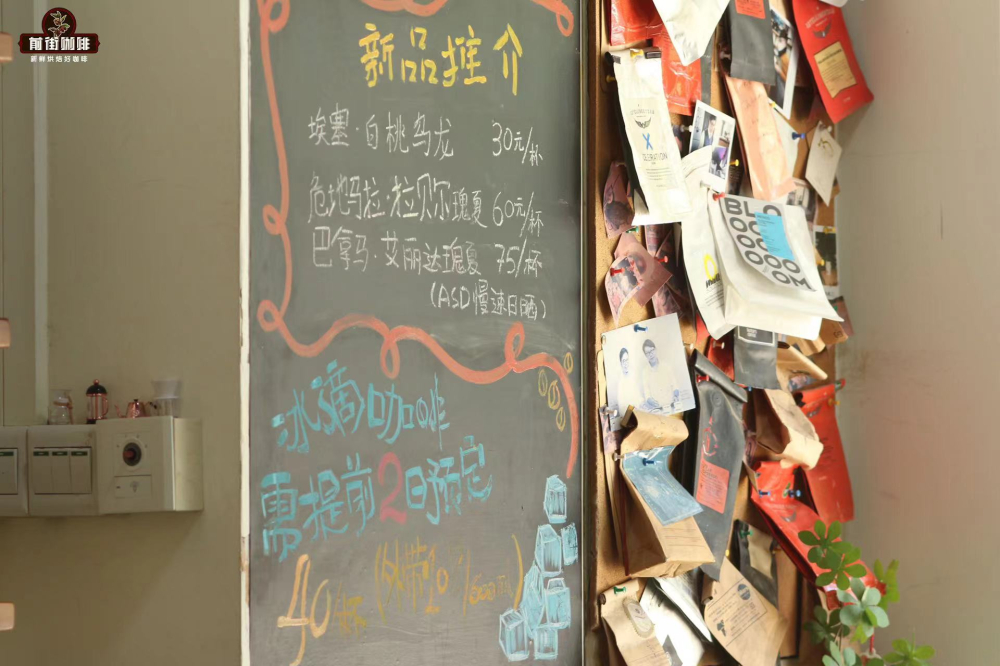 前街咖啡
新鲜烘焙好咖啡
新品推介
埃塞·白桃乌龙 30元/杯
危地马拉·拉贝尔瑰夏 60元/杯
巴拿马·艾丽达瑰夏 75/杯
(ASD慢速日晒)
冰滴咖啡
需提前2日预定
40/杯
BLO
OO
OOO
OOOO
OOOOM